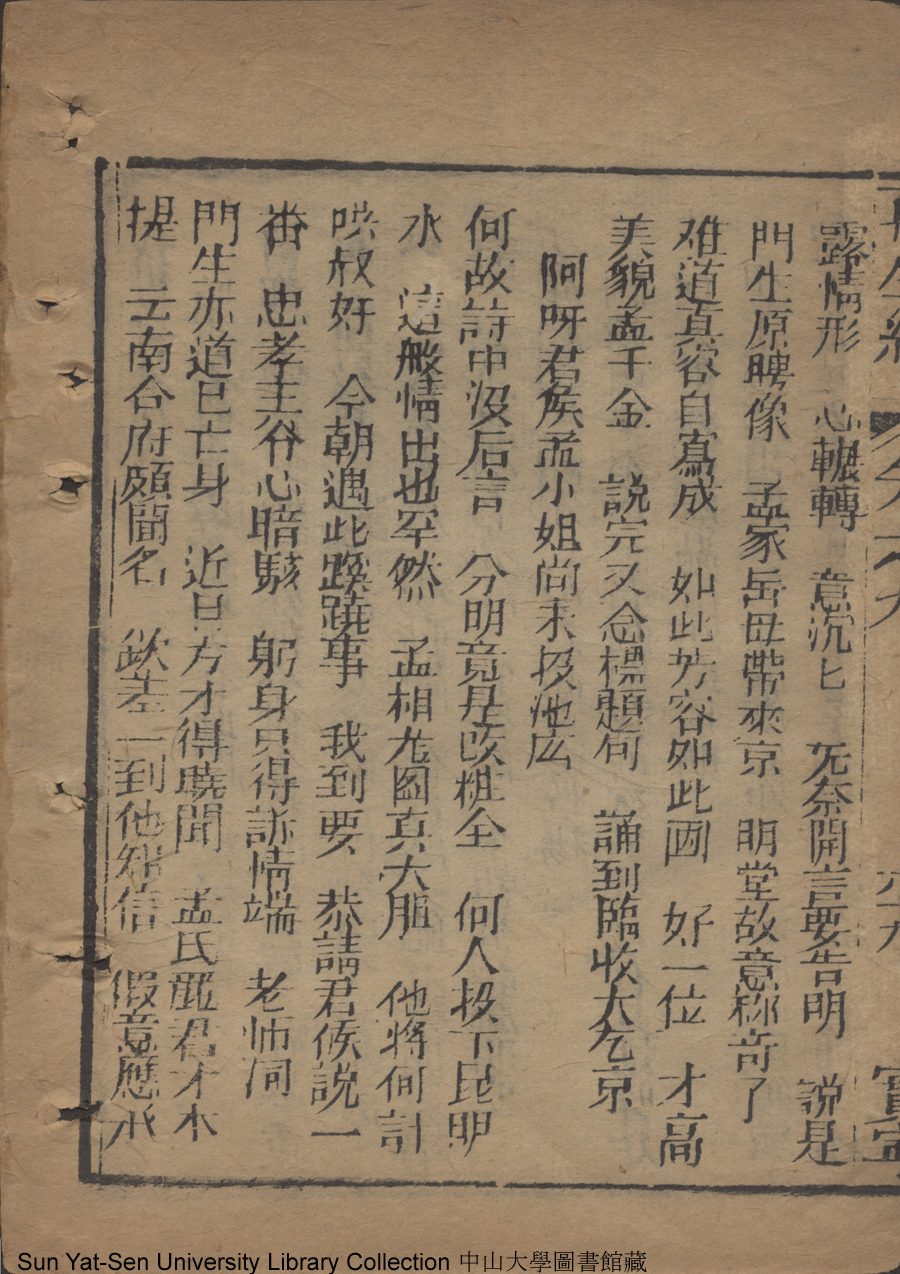 再生緣 卷六 六九 寶宝
露情形 心輾轉 意沉匕 旡奈開言要告明 說是
門生原聘像 孟家岳毋帶來京 明堂故意称竒了
难道真容自寫成 如此芳容如此画 好一位 才高
美貌孟千金 說完又念標題句 誦到臨收大乞京
阿呀君矦孟小姐尚未投池庅
何故詩中沒后言 分明竟是改粧全 何人投下昆明
水 這般情出也罕然 孟相尨图真大胆 他將何計
哄叔好 今朝遇此蹊蹺事 我到要 恭請君候說一
畨 忠孝王爷心暗駭 躬身只得訴情端 老师洞
門生亦道已亡身 近日方才得曉聞 孟氏郦君才本
提 云南合府頗聞名 欽差一到他知信 假意應承
Sun Yat-Sen University Library Collection 中山大學圖書館藏